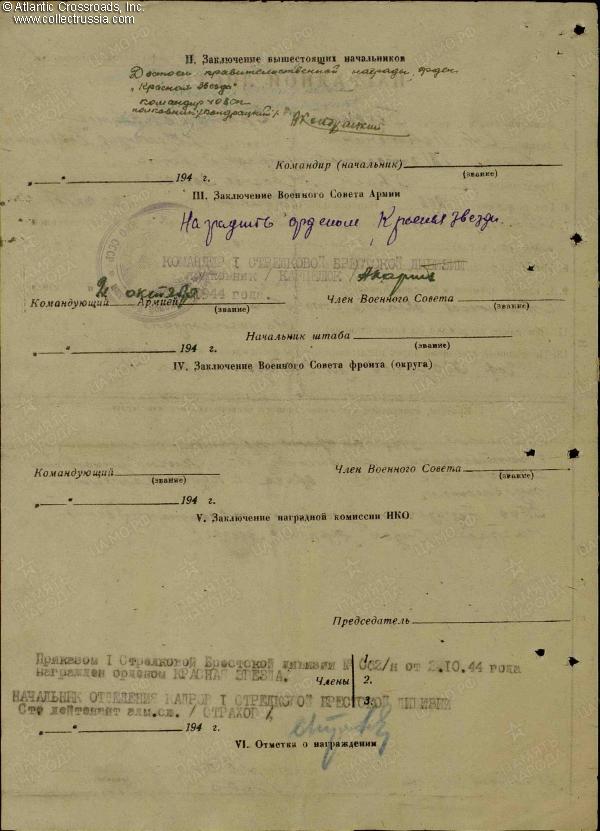 © Atlantic Crossroads, Inc.
www.collectrussia.com
II. Заключение вышестоящих начальников
Достоин правительственной награды орден
"Красная Звезда"
командир
полковник /Кондрацкий/
Командир (начальник)
(звание)
„ “ 194 г.
III. Заключение Военного Совета Армии
Наградить орденом Красная звезда.
КОМАНДИР I СТРЕЛКОВОЙ БРЕСТСКОЙ ДИВИЗИИ
2 октября 1944 года.
Командующий Армией
(звание)
Член Военного Совета
(звание)
Начальник штаба
(звание)
„ “ 194 г.
IV. Заключение Военного Совета фронта (округа)
Командующий
(звание)
Член Военного Совета
(звание)
„ “ 194 г.
V. Заключение наградной комиссии НКО
Председатель
Приказом I Стрелковой Брестской дивизии № 002/н от 2.10.44 года
награжден орденом КРАСНАЯ ЗВЕЗДА.
Члены
1.
2.
3.
НАЧАЛЬНИК ОТДЕЛЕНИЯ КАДРОВ I СТРЕЛКОВОЙ БРЕСТСКОЙ ДИВИЗИИ
Ст. лейтенант адм.сл. / СТРАХОВ /
„ “ 194 г.
VI. Отметка о награждении